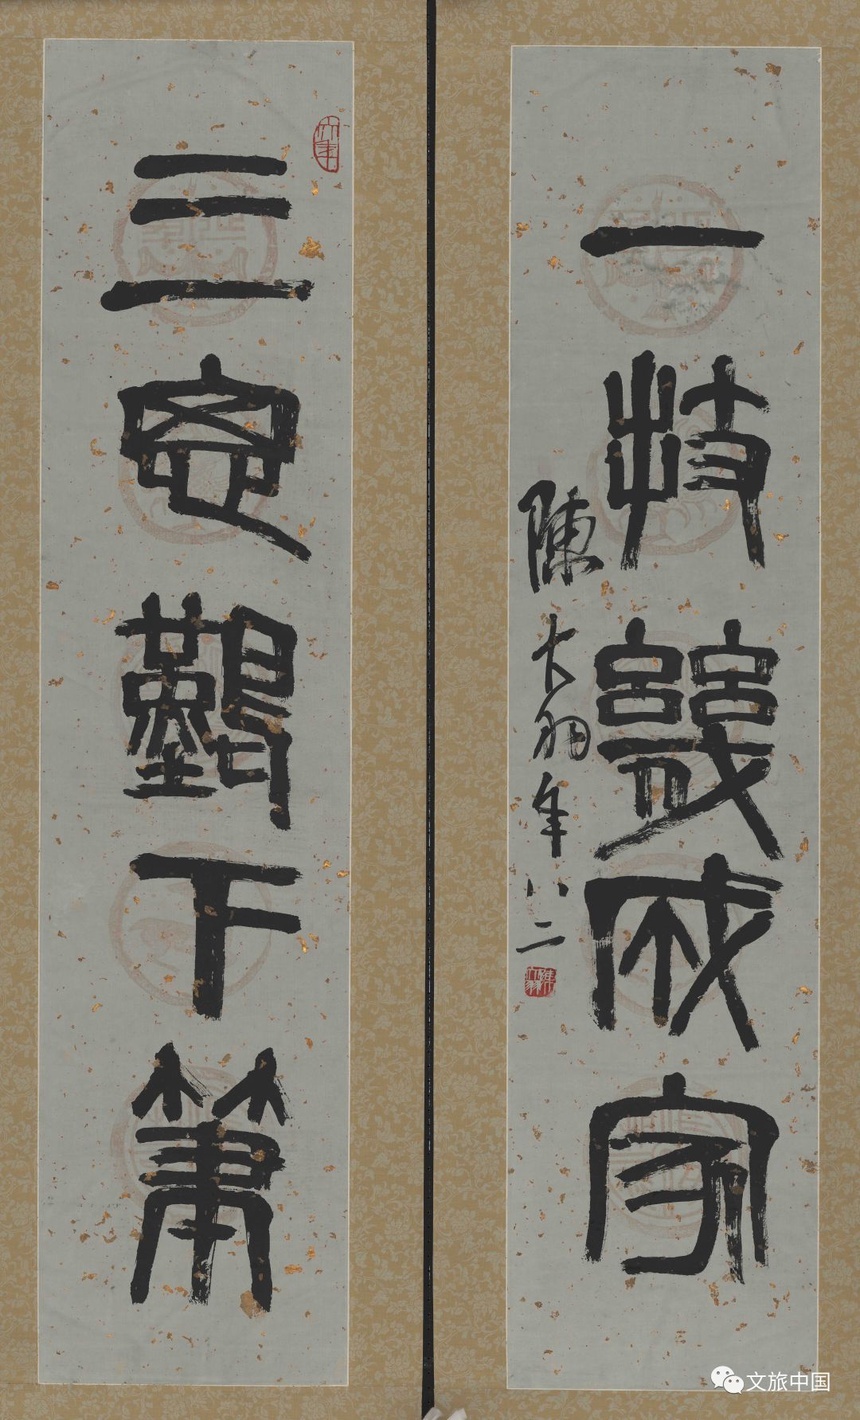 三思難下筆
一技幾成家
陳大羽年八二
文旅中国